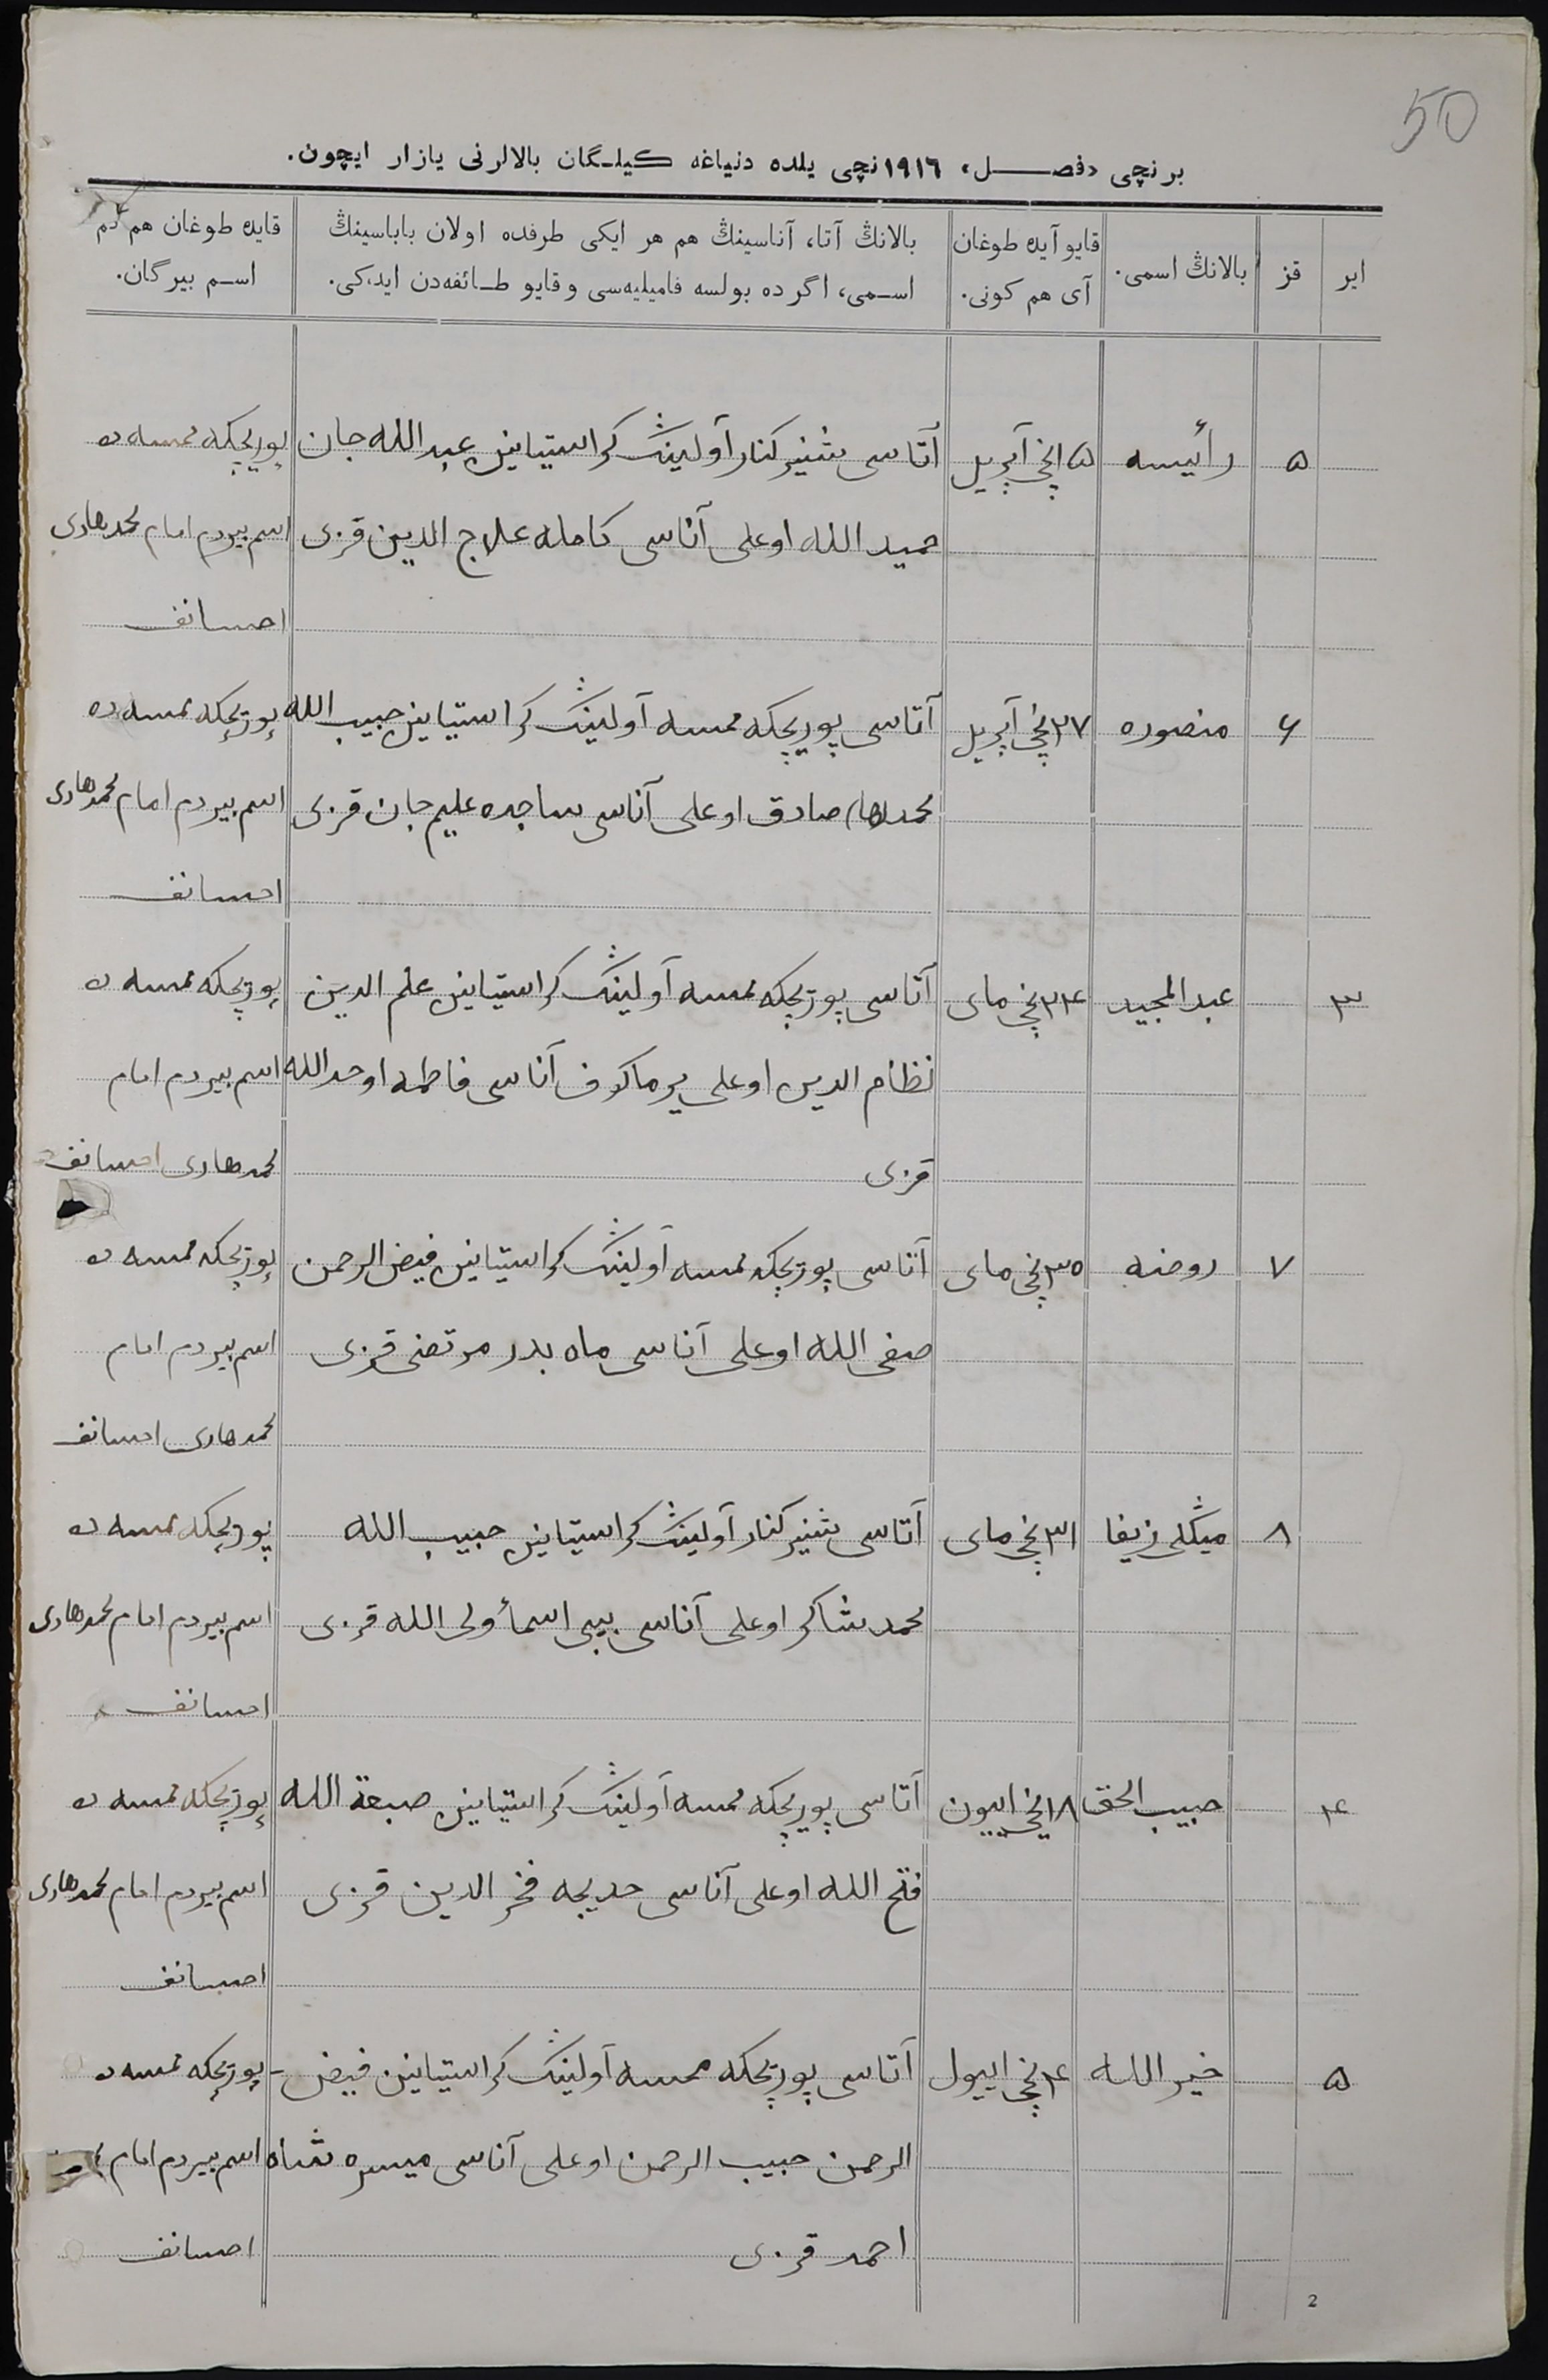 50
برنچی «فصل» ١٩١٦نچی یلده دنیاغه کیلگان بالالرنی یازار ایچون.
ایر قز بالانڭ اسمی. قایو آیده طوغان بالانڭ آتا، آناسینڭ هم هر ایکی طرفده اولان باباسینڭ قایده طوغان هم کم
آی هم کونی. اسمی، اگرده بولسه فامیلیه‌سی و قایو طائفه‌دن ایدکی. اسم بیرگان.
۵ رأیسه ۱۵نچی آپریل آتاسی شنیر کنار آولینڭ کراستیانین عبدالله جان پوریچکه ممسه ده
حمید الله اوغلی آناسی کامله علاج الدین قزی اسم بیردم امام محمدهادی
احسانف
۶ منصوره ۲۷نچی آپریل آتاسی پوریچکه ممسه آولینڭ کراستیانین حبیب الله پوریچکه ممسه ده
محمد صادق اوغلی آناسی ساجده علیم جان قزی اسم بیردم امام محمدهادی
احسانف
۳ عبد المجید ۲۴نچی مای آتاسی پوریچکه ممسه آولینڭ کراستیانین علم الدین پوریچکه ممسه ده
نظام الدین اوغلی یرماکوف آناسی فاطمه اوحد الله اسم بیردم امام
قزی محمدهادی احسانف
۷ روضه ۳۰نچی مای آتاسی پوریچکه ممسه آولینڭ کراستیانین فیض الرحمن پوریچکه ممسه ده
صفی الله اوغلی آناسی ماه بدر مرتضی قزی اسم بیردم امام
محمدهادی احسانف
۸ میڭلی زیفا ۳۱نچی مای آتاسی شنیر کنار آولینڭ کراستیانین حبیب الله پوریچکه ممسه ده
محمد شاکر اوغلی آناسی بیبی اسمأ ولی الله قزی اسم بیردم امام محمدهادی
احسانف
۴ حبیب الحق ۱۸نچی اییون آتاسی پوریچکه ممسه آولینڭ کراستیانین صبغة الله پوریچکه ممسه ده
فتح الله اوغلی آناسی خدیجه فخر الدین قزی اسم بیردم امام محمدهادی
احسانف
۵ خیر الله ۴نچی اییول آتاسی پوریچکه ممسه آولینڭ کراستیانین فیض- پوریچکه ممسه ده
الرحمن حبیب الرحمن اوغلی آناسی میسره شاه اسم بیردم امام
احمد قزی احسانف
2